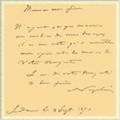 Monsieur mon frère
N'ayant pas pu mourir
au milieu de mes troupes
il ne me reste qu'à remettre
mon épée entre les mains de
Votre Majesté
Je suis de Votre Majesté
le bon frère
Napoléon
Sedan le Sept 1870